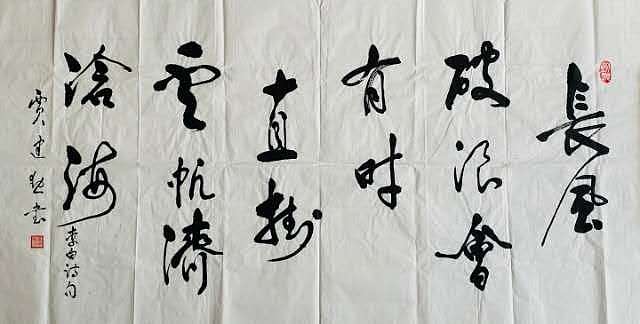 長風
破浪會
有时
直掛
雲帆濟
滄海
李白诗句
贾建 书